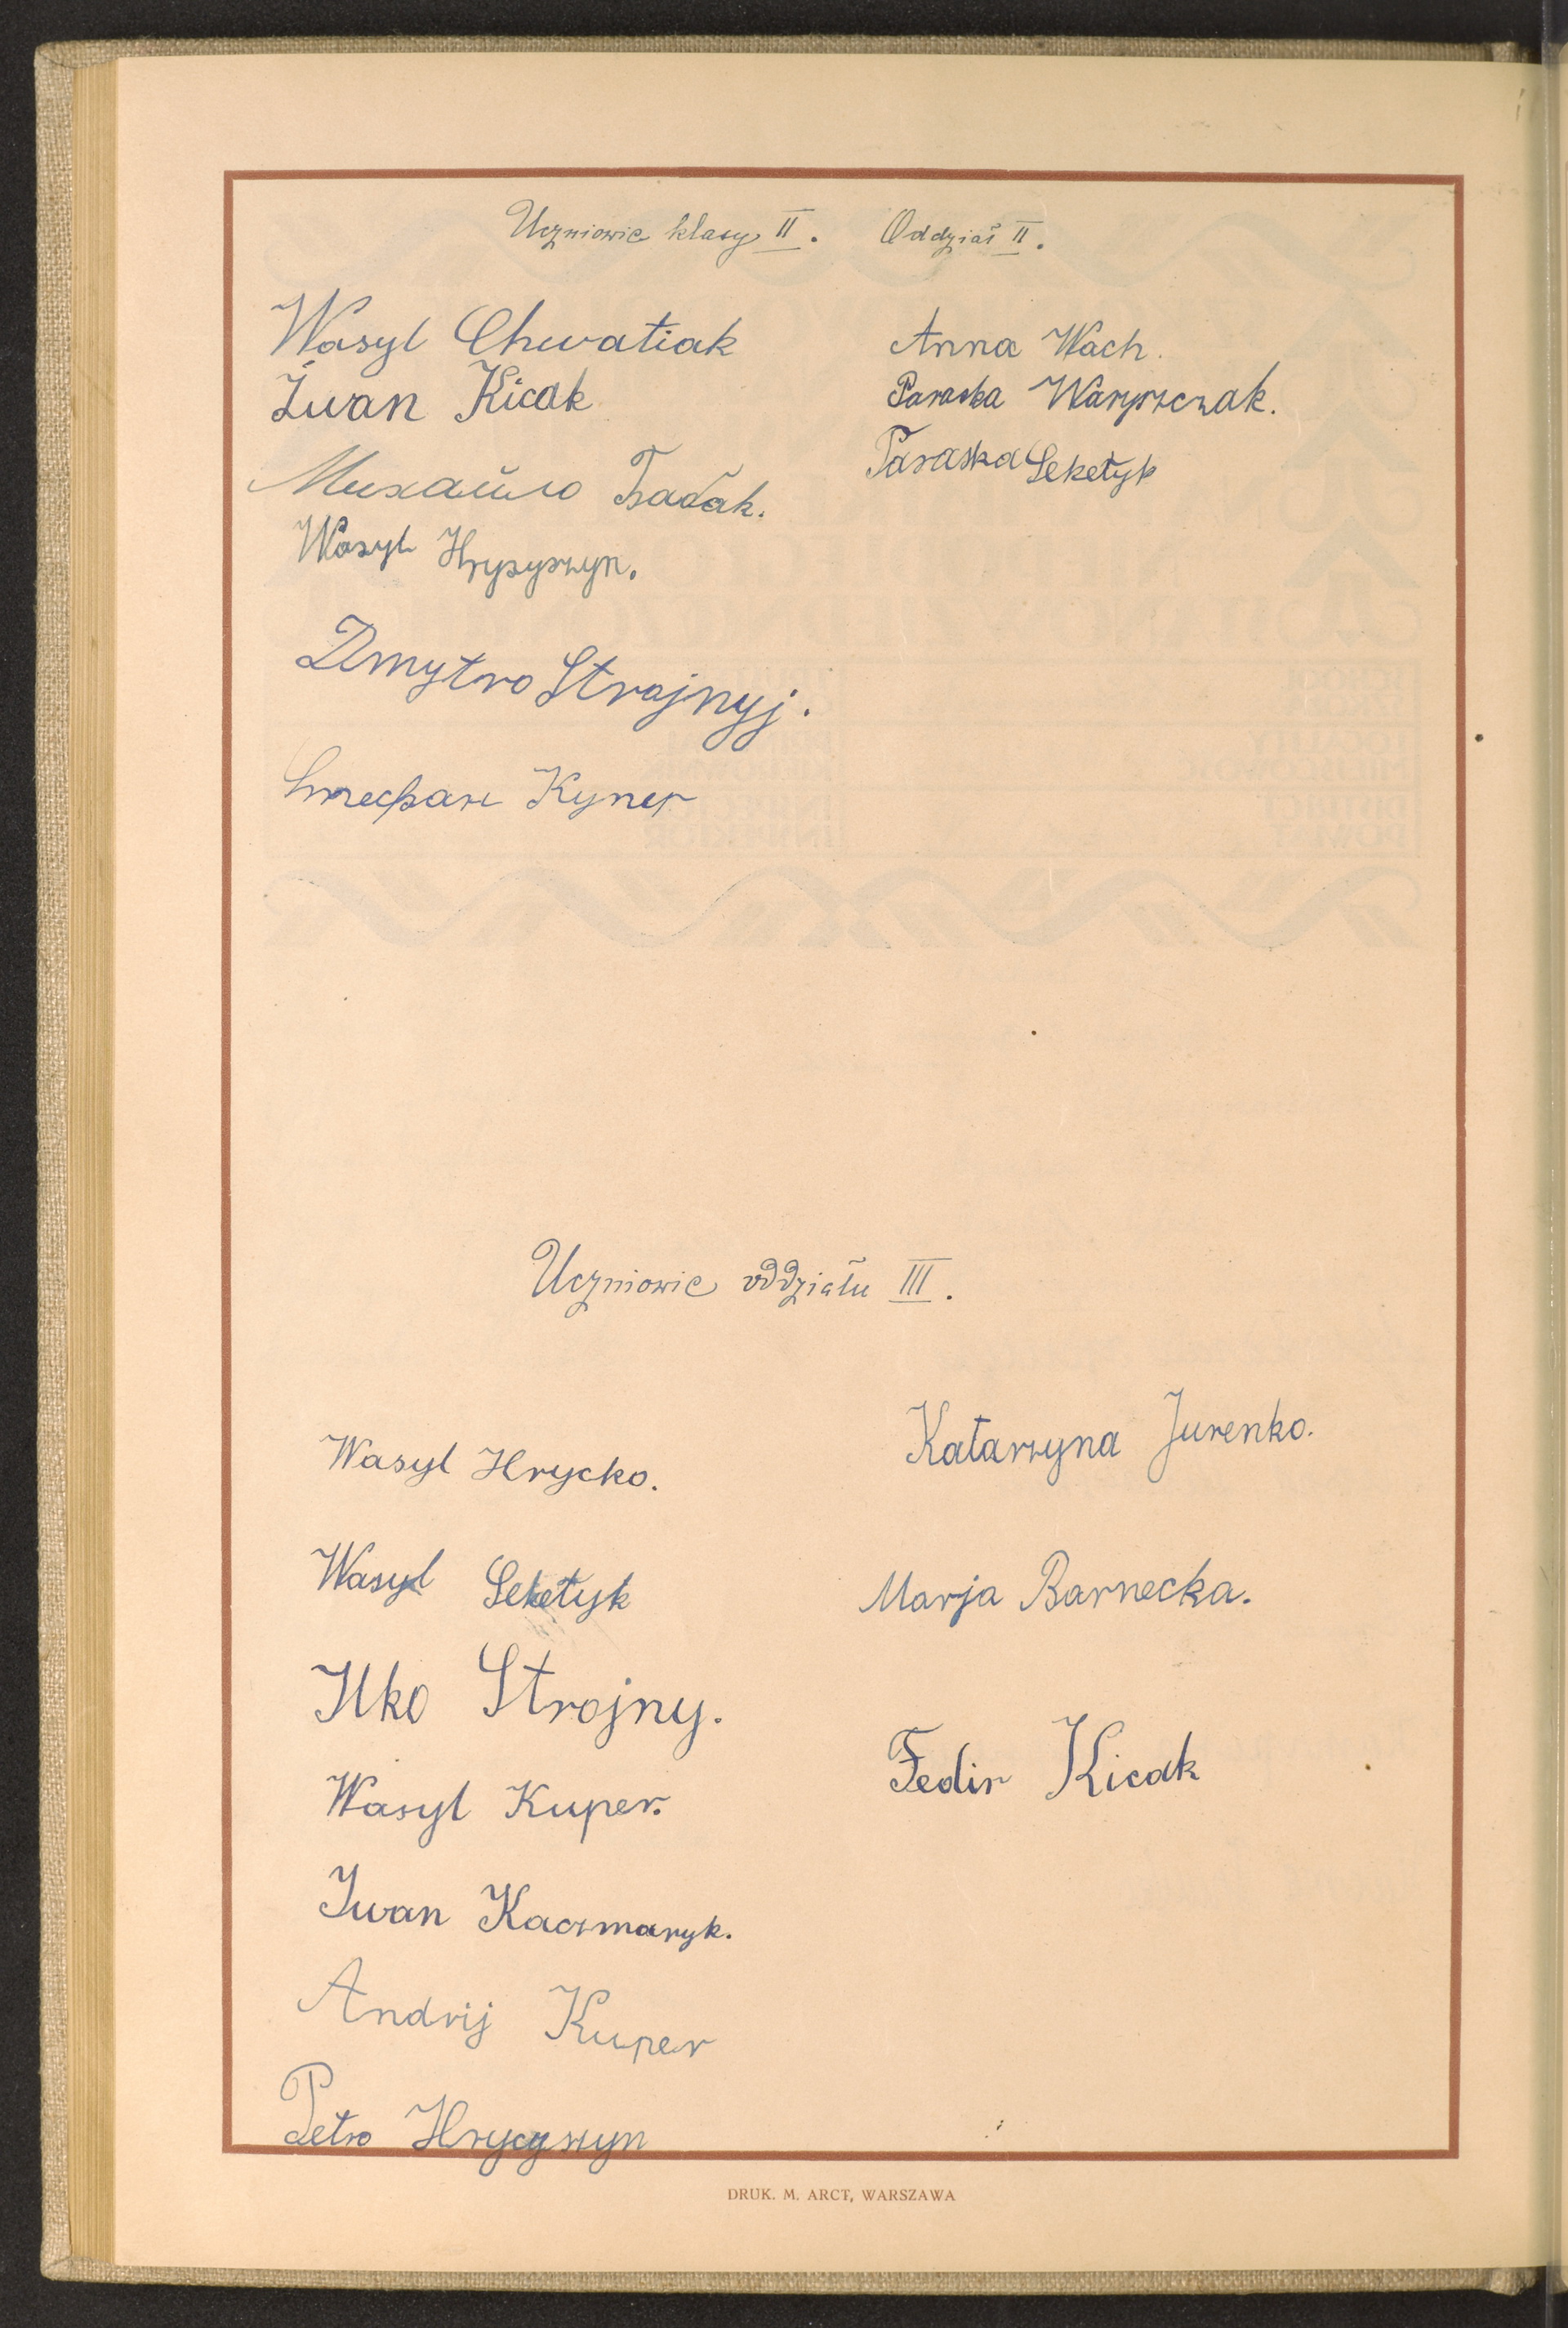 Uczniowie klasy II. Oddział II.
Wasyl Chwatiak
Iwan Kicak
Михайло Бабак.
Wasyl Hrycyszyn.
Dmytro Strojnyj.
Стефан Купер
Anna Wach.
Paraska Waryszczak.
Paraska Seketyk
Uczniowie oddziału III.
Wasyl Hrycko.
Wasyl Seketyk
Ilko Strojny.
Wasyl Kuper.
Iwan Kaczmaryk.
Andrij Kuper
Petro Hrycyszyn
Katarzyna Jurenko.
Marja Barnecka.
Fedir Kicak
DRUK. M. ARCT, WARSZAWA